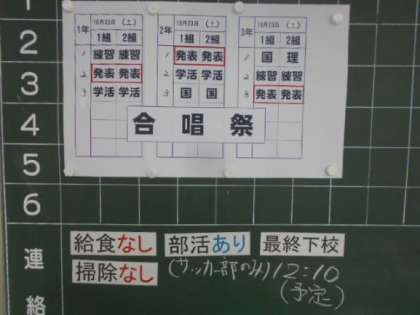 1
2
3
4
5
6
連
絡
1年 10月23日 (土)
1組 2組
1 練習 練習
2 発表 発表
3 学活 学活
2年 10月23日 (土)
1組 2組
1 発表 発表
2 学活 学活
3 国 国
3年 10月23日 (土)
1組 2組
1 国 理
2 練習 練習
3 発表 発表
合唱祭
給食なし 部活あり 最終下校
掃除なし (サッカー部のみ) 12:10
(予定)